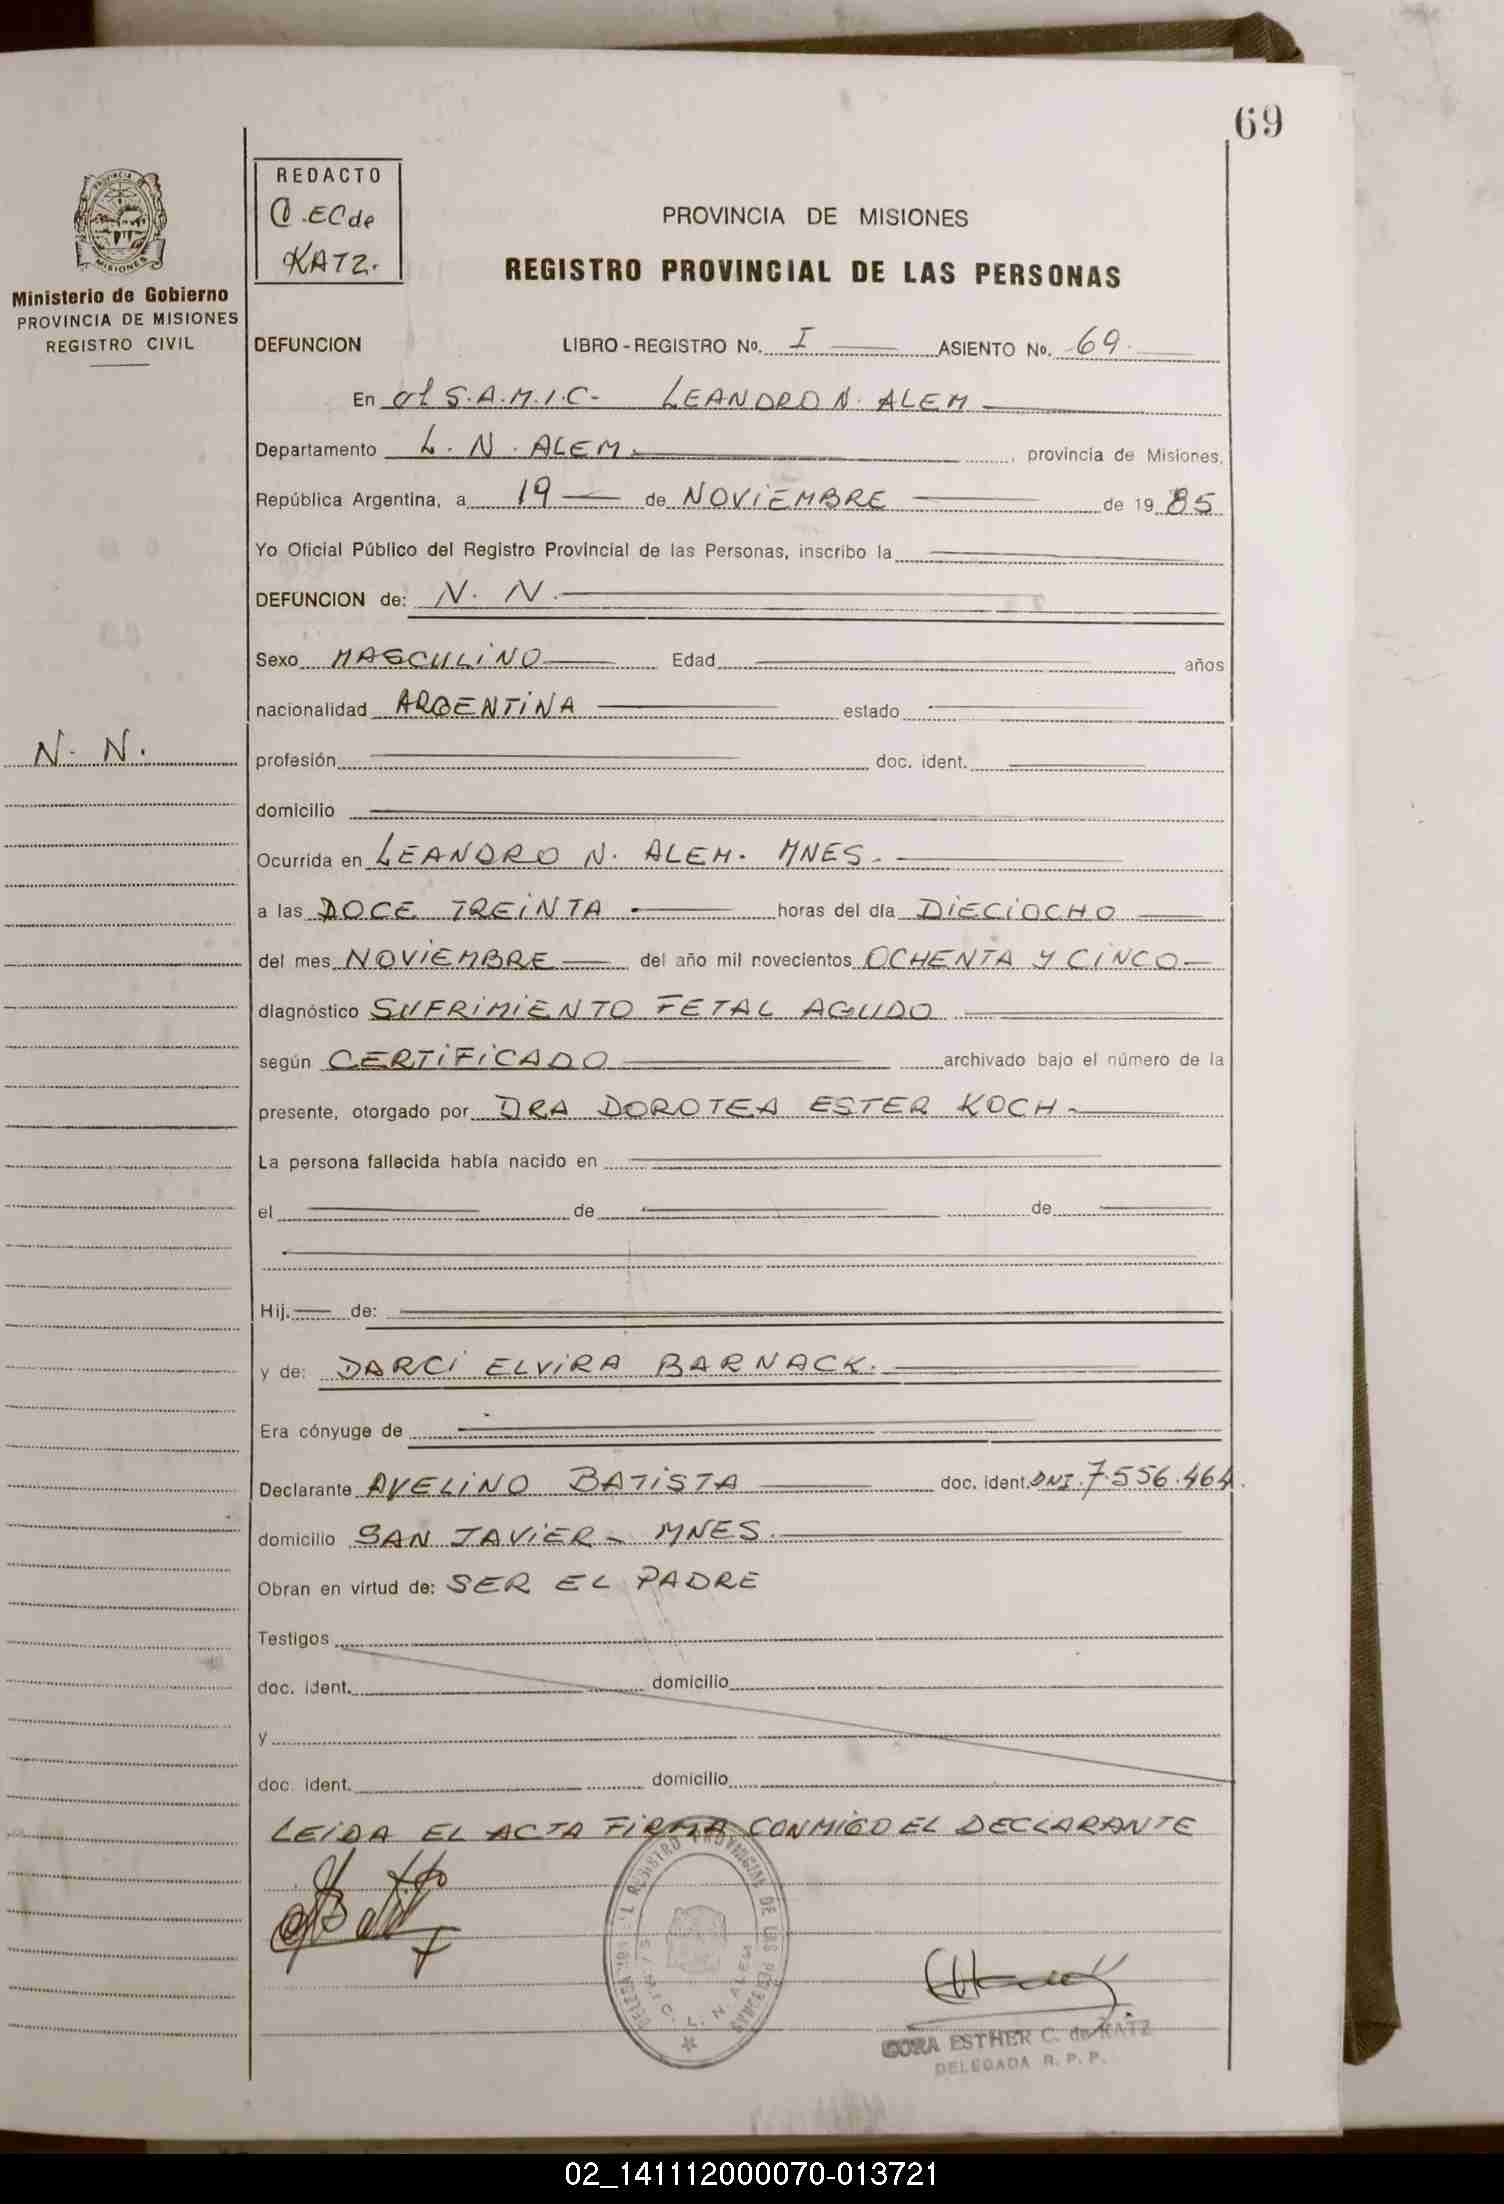 69
REDACTO
C.EC de
KATZ.
PROVINCIA DE MISIONES
REGISTRO PROVINCIAL DE LAS PERSONAS
Ministerio de Gobierno
PROVINCIA DE MISIONES
REGISTRO CIVIL
DEFUNCION LIBRO-REGISTRO No. I ASIENTO No. 69
En el S.A.M.I.C- LEANDRO N. ALEM
Departamento L. N. ALEM. , provincia de Misiones,
República Argentina, a 19 de NOViEMBRE de 19 85
Yo Oficial Público del Registro Provincial de las Personas, inscribo la
DEFUNCION de: N. N.
Sexo MASCULiNO Edad años
nacionalidad ARGENTiNA estado
N. N.
profesión doc. ident.
domicilio
Ocurrida en LEANDRO N. ALEM. MNES.
a las DOCE TREiNTA horas del día DiECiOCHO
del mes NOViEMBRE del año mil novecientos OCHENTA Y CiNCO
diagnóstico SUFRiMiENTO FETAL AGUDO
según CERTiFiCADO archivado bajo el número de la
presente, otorgado por DRA DOROTEA ESTER KOCH
La persona fallecida había nacido en
el de de
Hij. de:
y de: DARCi ELViRA BARNACK.
Era cónyuge de
Declarante AVELiNO BATiSTA doc. ident. DNI. 7.556.464.
domicilio SAN JAViER - MNES.
Obran en virtud de: SER EL PADRE
Testigos
doc. ident. domicilio
y
doc. ident. domicilio
LEiDA EL ACTA FiRMA CONMIGO EL DECLARANTE
REGISTRO PROVINCIAL DE LAS PERSONAS
S.A.M.I.C. L. N. ALEM
CORA ESTHER C. de KATZ
DELEGADA R. P. P.
02_141112000070-013721